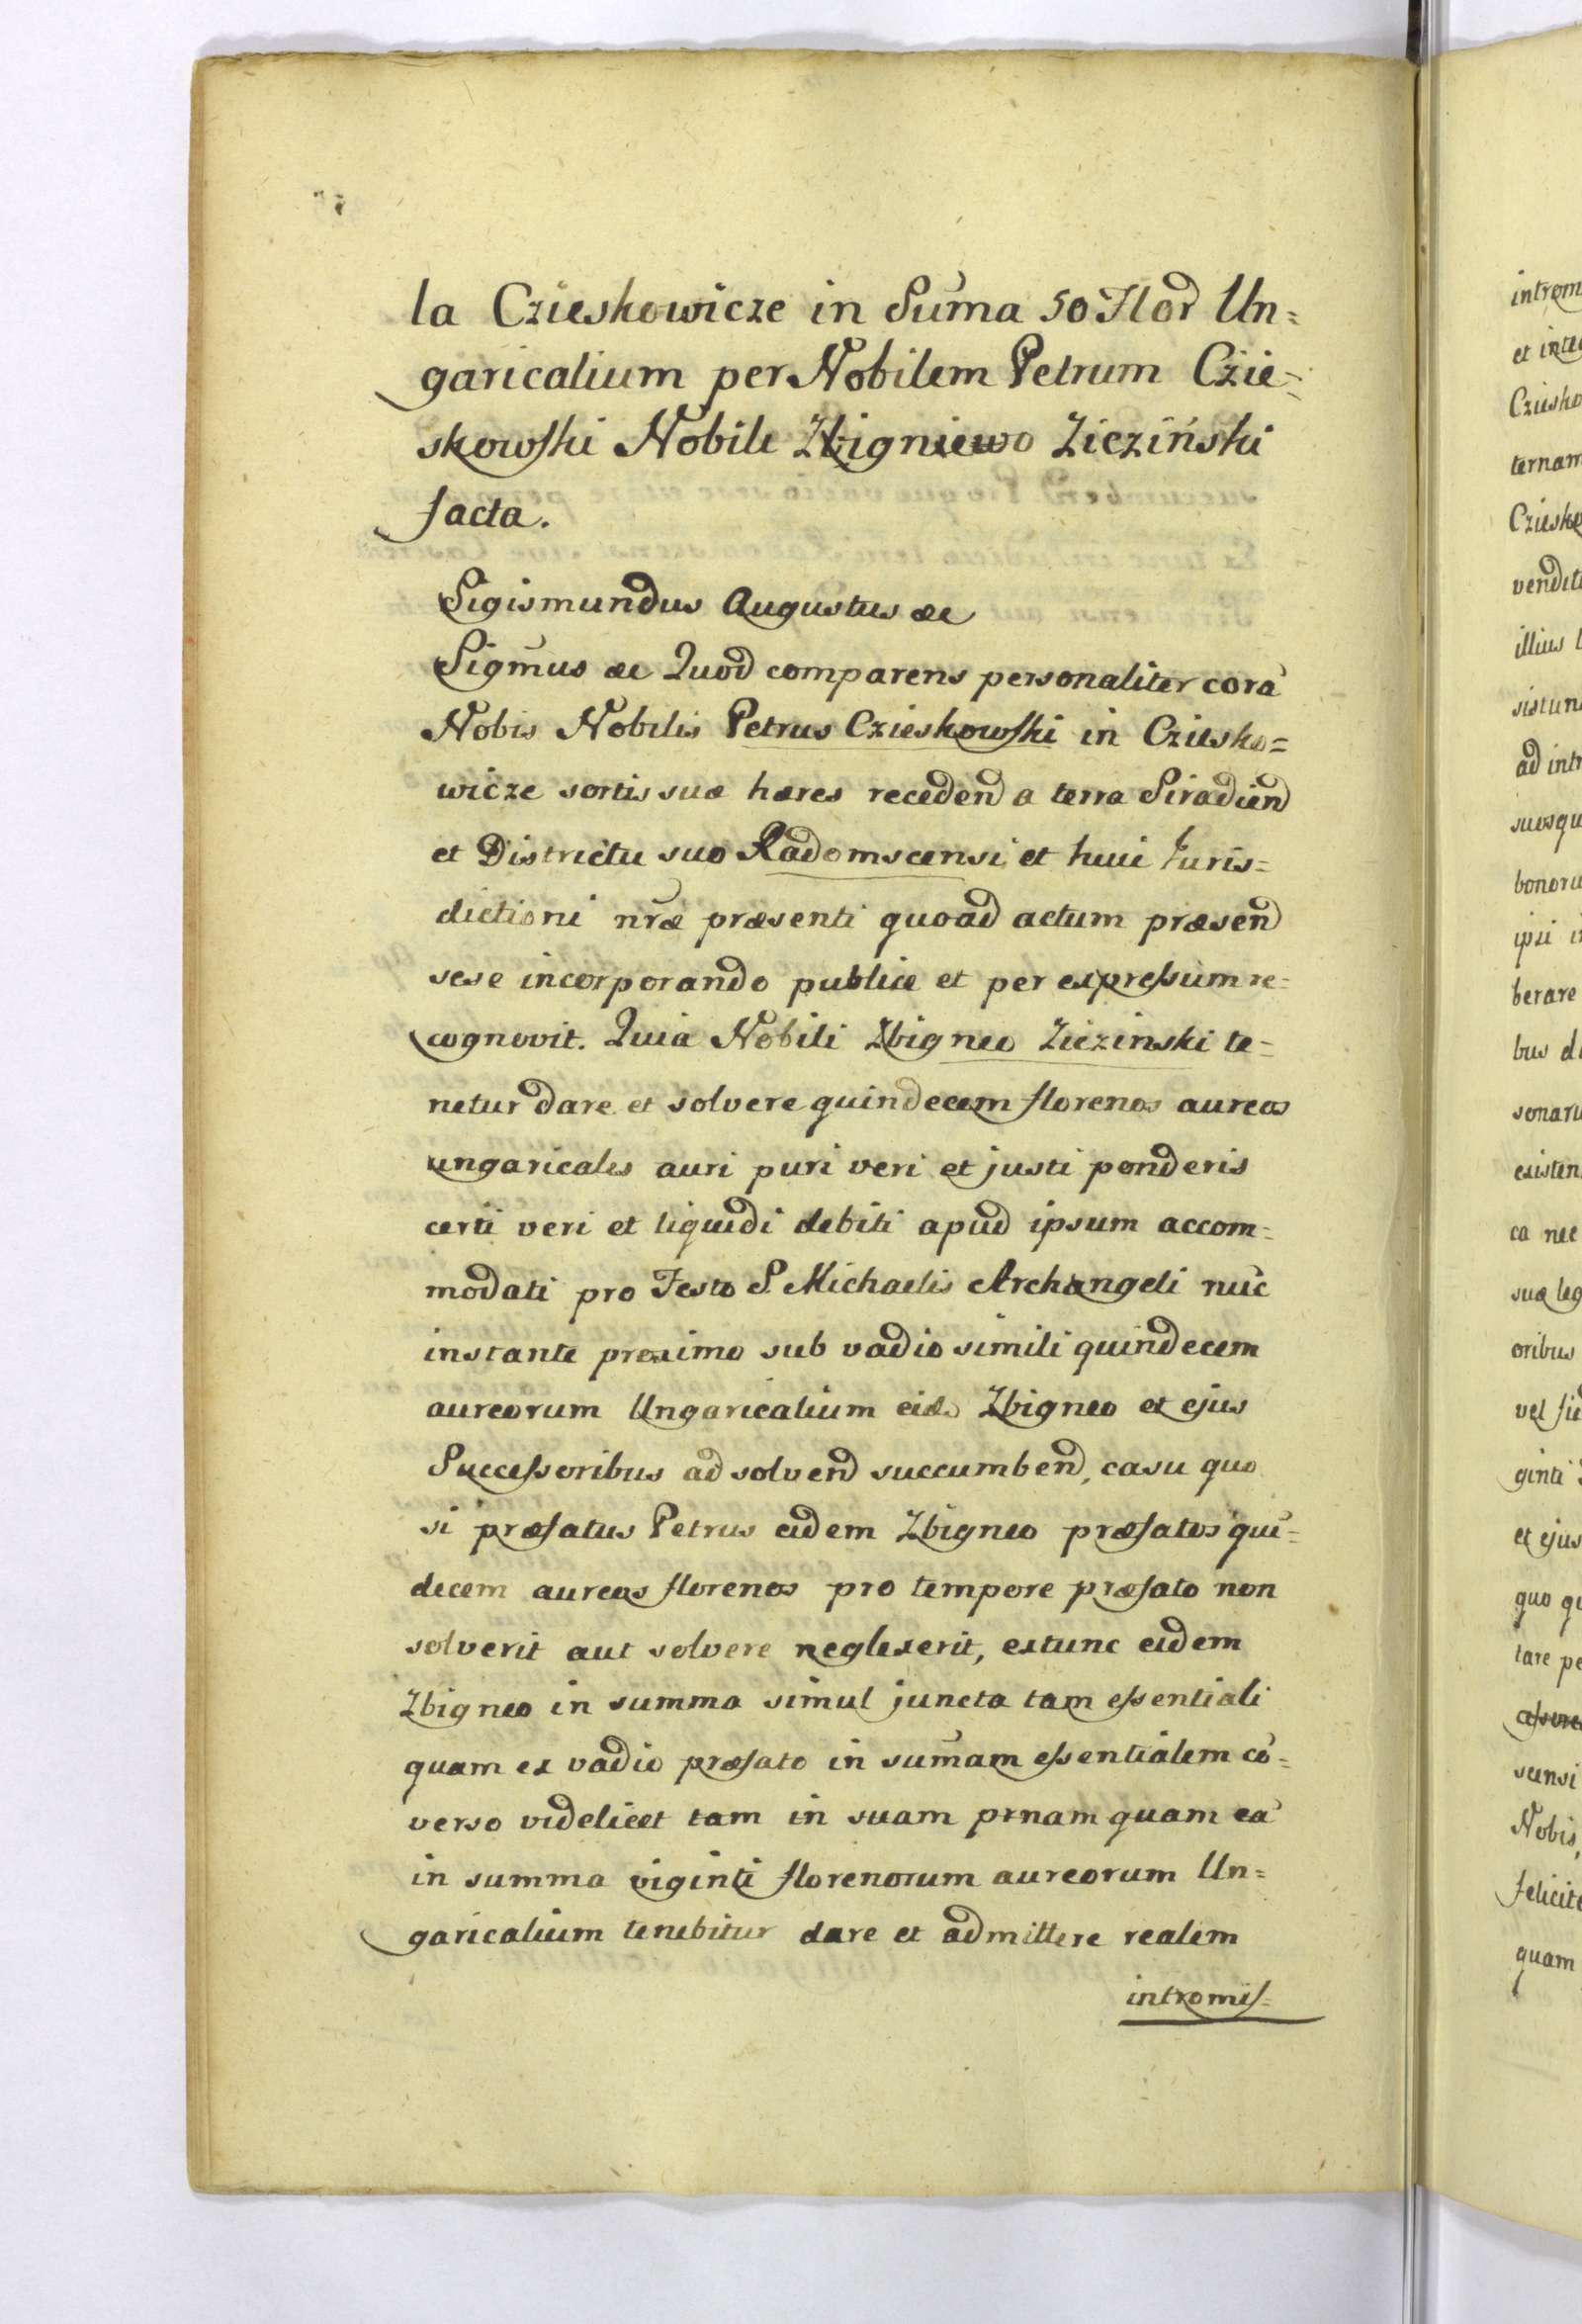 la Czieskowicze in Sum̃a 50 Flor Un=
garicalium per Nobilem Petrum Czie=
skowski Nobili Zbigniewo Zicziński
facta.
Sigismundus Augustus æc
Sigm̃us æc Quod comparens personaliter corã
Nobis Nobilis Petrus Czieskowski in Cziesko=
wicze sortis suæ hæres receden a terra Siradien
et Districtu suo Radomscensi et huic Juris=
dictioni nr̃æ præsenti quoad actum præsen
sese incorporando publice et per expressum re=
cognovit. Quia Nobili Zbigneo Ziczinski te=
netur dare et solvere quindecem florenos aureos
ungaricales auri puri veri et justi ponderis
certi veri et liquidi debiti apud ipsum accom=
modati pro Festo S. Michaelis Archangeli nũc
instante proximo sub vadio simili quindecem
aureorum Ungaricalium eid. Zbigneo et ejus
Successoribus ad solvend succumbend, casu quo
si præfatus Petrus eidem Zbigneo præfatos quĩ=
decem aureos florenos pro tempore præfato non
solverit aut solvere neglexerit, extunc eidem
Zbigneo in summa simul juncta tam essentiali
quam ex vadio præfato in sum̃am essentialem cõ=
verso videlicet tam in suam prnam quam eã
in summa viginti florenorum aureorum Un=
garicalium tenebitur dare et admittere realem
intromis=
introm
et inte
Cziesko
ternam
Cziesko
vendit
illius
sistun
ad intr
suosqu
bonoru
ipsi i
berare
bus d
sonaru
existen
ca nec
suæ leg
oribus
vel
ginti
et ejus
quo qu
tare pe
scensi
Nobis,
felicit
quam